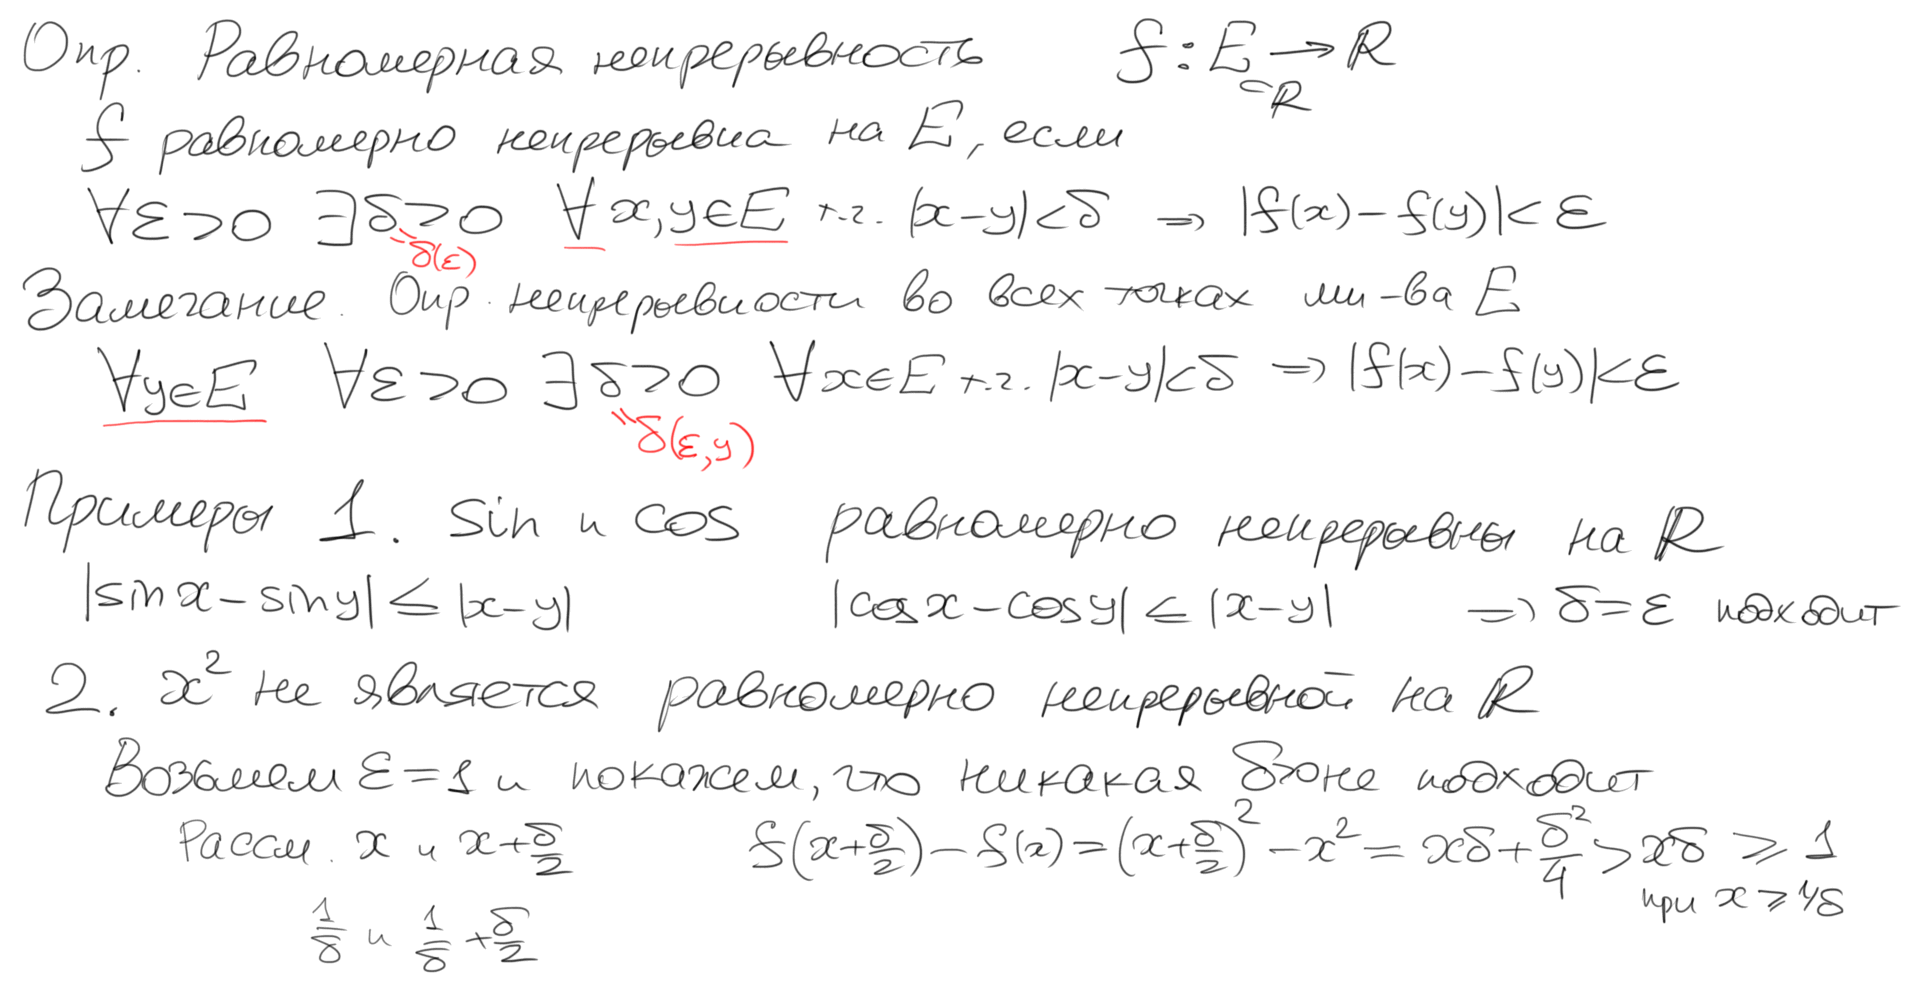 Опр. Равномерная непрерывность f : E → R
⊂ R
f равномерно непрерывна на E, если
∀ε>0 ∃δ>0 ∀ x,y∈E т.ч. |x−y|<δ ⇒ |f(x)−f(y)|<ε
δ(ε)
Замечание. Опр. непрерывности во всех точках мн-ва E
∀y∈E ∀ε>0 ∃δ>0 ∀x∈E т.ч. |x−y|<δ ⇒ |f(x)−f(y)|<ε
δ(ε,y)
Примеры 1. sin и cos равномерно непрерывны на R
|sin x − sin y| ≤ |x−y| |cos x − cos y| ≤ |x−y| ⇒ δ=ε подходит
2. x² не является равномерно непрерывной на R
Возьмем ε=1 и покажем, что никакая δ>0 не подходит
Рассм. x и x+δ/2 f(x+δ/2)−f(x)=(x+δ/2)²−x²=xδ+δ²/4>xδ ≥ 1
при x ≥ 1/δ
1/δ и 1/δ+δ/2